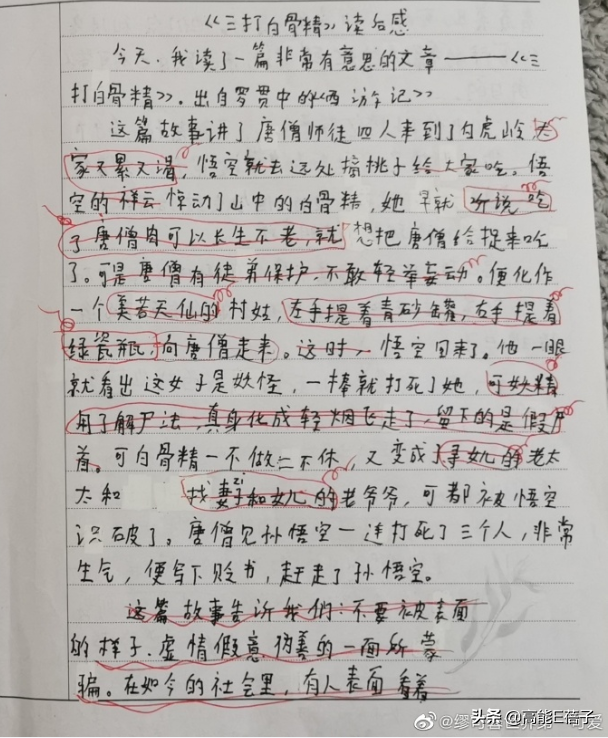 《三打白骨精》读后感
今天,我读了一篇非常有意思的文章——《三
打白骨精》。出自罗贯中的《西游记》
这篇故事讲了唐僧师徒四人来到了白虎岭,大
家又累又渴,悟空就去远处摘桃子给大家吃。悟
空的祥云惊动了山中的白骨精,她早就听说吃
了唐僧肉可以长生不老,就想把唐僧给捉来吃
了。可是唐僧有徒弟保护,不敢轻举妄动。便化作
一个美若天仙的村姑,左手提着青砂罐,右手提着
绿瓷瓶,向唐僧走来。这时,悟空回来了。他一眼
就看出这女子是妖怪,一棒就打死了她,可妖精
用了解尸法,真身化成轻烟飞走了,留下的是假尸
首。可白骨精一不做二不休,又变成了寻女儿的老太
太和 找妻子和女儿的老爷爷,可都被悟空
zi
识破了。唐僧见孙悟空一连打死了三个人,非常
生气,便写下贬书,赶走了孙悟空。
这篇故事告诉我们:不要被表面
的样子、虚情假意伪善的一面所蒙
骗。在如今的社会里,有人表面看着
头条 @高能E蓓子